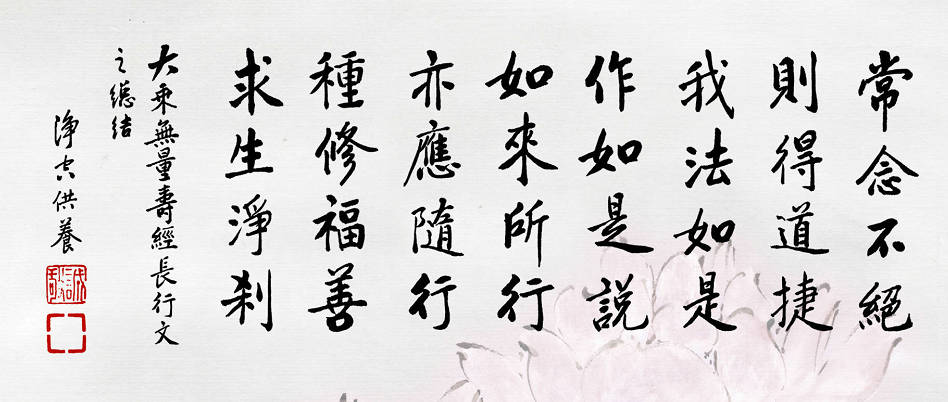 常念不絕
則得道捷
我法如是
作如是説
如來所行
亦應隨行
種修福善
求生淨刹
大乘無量壽經長行文
之總结
淨空供養